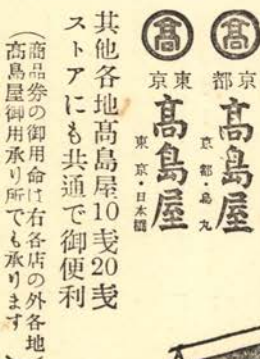 髙
京都
髙島屋
京都・烏丸
髙
東京
髙島屋
東京・日本橋
其他各地髙島屋10戔20戔
ストアにも共通で御便利
(商品券の御用命は右各店の外各地
髙島屋御用承り所でも承ります)